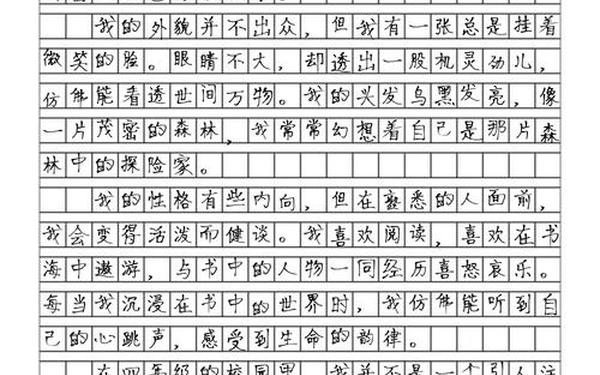 我的外貌并不出众，但我有一张总是挂着
微笑的脸。眼睛不大，却透出一股机灵劲儿，
仿佛能看透世间万物。我的头发乌黑发亮，像
一片茂密的森林，我常常幻想着自己是那片森
林中的探险家。
我的性格有些内向，但在熟悉的人面前，
我会变得活泼而健谈。我喜欢阅读，喜欢在书
海中遨游，与书中的人物一同经历喜怒哀乐。
每当我沉浸在书中的世界时，我仿佛能听到自
己的心跳声，感受到生命的韵律。
在四年级的校园里，我并不是一个引人注